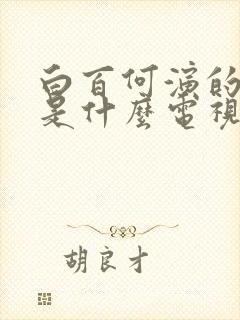 白百何演的
是什麼電視
胡良才